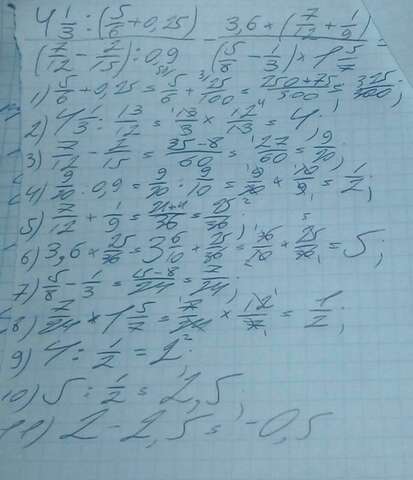 4 1/3 : (5/6 + 0,25) / (7/12 - 2/15) : 0,9 - 3,6 × (7/12 + 1/9) / (5/8 - 1/3) × 1 5/7 =
1) 5/6 + 0,25 = 5/6 + 25/100 = 250+75/300 = 325/300;
2) 4 1/3 : 13/12 = 13/3 × 12/13 = 4
3) 7/12 - 2/15 = 35-8/60 = 27/60 = 9/20;
4) 9/20 : 0,9 = 9/20 : 9/10 = 9/20 × 10/9 = 1/2;
5) 7/12 + 1/9 = 21+4/36 = 25/36
6) 3,6 × 25/36 = 3 6/10 × 25/36 = 36/10 × 25/36 = 5;
7) 5/8 - 1/3 = 15-8/24 = 7/24;
8) 7/24 × 1 5/7 = 7/24 × 12/7 = 1/2;
9) 4 : 1/2 = 2;
10) 5 : 1/2 = 2,5;
11) 2 - 2,5 = -0,5